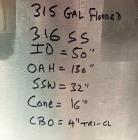 315 GAL FLOODED
316 SS
ID = 50"
OAH = 136"
SSW = 32"
Cone = 16"
CBO = 4" TRI-CL